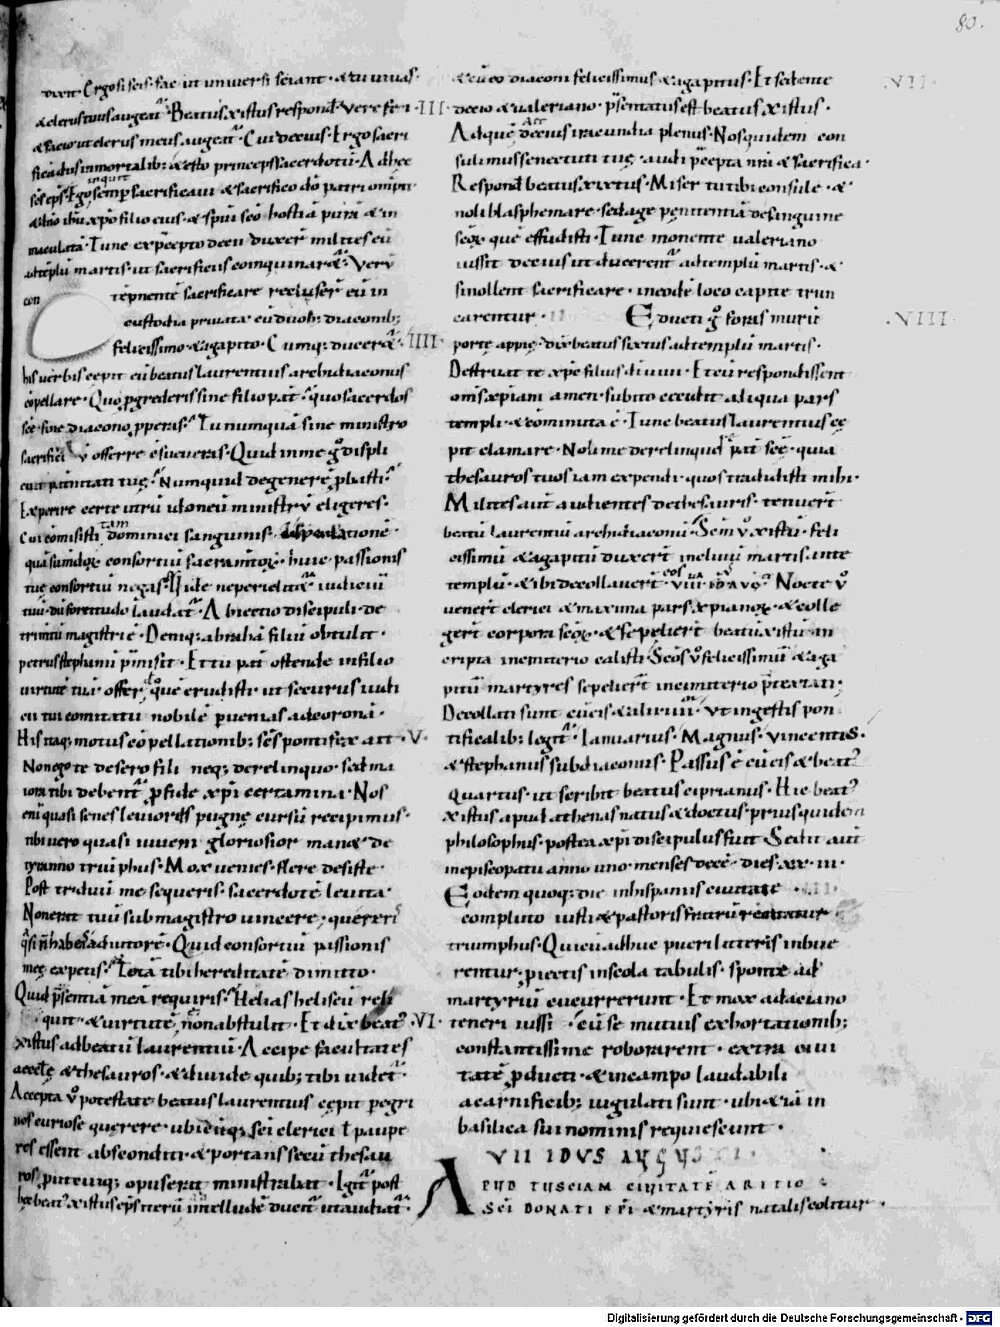 80.
dixit · Ergo si scis · fac ut universi sciant · & tu vivas ·
& clerus tuus augeat᷑ · Beatus xistus respond̄ · Vere feci · III ·
& facio ut clerus meus augeat᷑ · Cui decius · Ergo sacri
fica diis inmortalib; & esto princeps sacerdotū · Ad hęc
sc̄s ep̄s · Ego inquit semp̄ sacrificavi & sacrifico dō patri om̄ptī
& dn̄o ihū xpō filio eius · & sp̄ui sc̄o hostiā purā & in
maculatā · Tunc ex p̄cepto decii duxer̄ milites eū
ad tēplū martis · ut sacrificiis coinquinar&᷑ · Verū
con
tēpnentē sacrificare recluser̄ eū in
custodia privata cū duob; diaconib;
felicissimo & agapito · Cumq; ducer&᷑ · IIII ·
his verbis cępit eū beatus laurentius archidiaconus
cōpellare · Quo p̱grederis sine filio pat᷑ · quo sacerdos
sc̄e · sine diacono p̱peras · Tu nunquā sine ministro
sacrificiū offerre c̄sueveras · Quid in me g̊ displi
cuit pat᷑nitati tuę · Numquid degenerē p̱basti ·
Experire certe utrū idoneū ministrū eligeres ·
Cui cōmisisti tam dominici sanguinis
quā sumdoꝝ consortiū sacramtoꝝ · huic passionis
tuę consortiū negas · Vide ne periclit&᷑ iudiciū
tuū · dū fortitudo laudat᷑ · Abiectio discipuli · de
trimtū magistri ē · Deniq; abrahā filiū obtulit ·
petrus stephanū p̄misit · Et tu pat᷑ ostende in filio
virtutē tuā · offer quē erudisti · ut securus iudi
cii tui comitatu nobilē p̱venias ad coronā ·
His itaq; motus cōpellationib; sc̄s pontifex ait · V ·
Non ego te desero fili neq; derelinquo · sed ma
iora tibi debent᷑ p̱ fide xpī certamina · Nos
eni quasi senes levioris pugnę cursū recipimus ·
tibi vero quasi iuveni gloriosior man& de
tyranno triuphus · Mox venies · flere desiste ·
Post triduū me sequeris · sacerdotē levita ·
Non erat tuū sub magistro vincere · quęreri
q̄si n̄ haberes adiutorē · Quid consortiū passionis
meę expetis · Totā tibi hereditatē dimitto ·
Quid p̄sentiā meā requiris · Helias heliseū reli
quit · & virtutē non abstulit · Et dix̄ beat᷒ · VI ·
xistus ad beatū laurentiū · Accipe facultates
accłę & thesauros · & divide quib; tibi videt᷑ ·
Accepta v̊ potestate beatus laurentius cępit p̱ egri
nos curiose quęrere · ubicūq; sc̄i clerici ł paupe
res essent absconditi · & portans secū thesau
ros · p̱ut cuiq; opus erat ministrabat · Igit᷑ post
hęc beat᷒ xistus ep̄s iterū in tellude ducit᷑ ut audiat᷑ ·
& cū eo diaconi felicissimus & agapitus · Et sedente · VII ·
decio & valeriano · p̄sentatus est beatus xistus ·
Ad quē decius iracundia plenus · Nos quidem con
sulimus senectuti tuę · audi p̄cepta nr̄a & sacrifica ·
Respond̄ beatus xixtus · Miser tu tibi consule · &
noli blasphemare · sed age pęnitentiā de sanguine
sc̄oꝝ quē effudisti · Tunc monente valeriano
iussit decius ut ducerent᷑ ad templū martis · &
si nollent sacrificare · in eodē loco capite trun
carentur · Educti g̊ foras murū · VIII ·
portę appię · dix̄ beatus sixtus ad templū martis ·
Destruat te xp̄e filius dī vivi · Et cū respondissent
om̄s xpiani amen · subito cecidit aliqua pars
templi · & cōminuta ē · Tunc beatus laurentius cę
pit clamare · Noli me derelinquere pat᷑ sc̄e · quia
thesauros tuos iam expendi · quos tradidisti mihi ·
Milites aut̄ audientes de thesauris · tenuer̄
beatū laurentiū archidiaconū · Sc̄m v̊ xistū · feli
cissimū & agapitū duxer̄ in clivū martis · ante
templū · & ibi decollaver̄ eos · VIII · id · aug · Nocte v̊
vener̄ clerici & maxima pars xpianoꝝ · & colle
ger̄ corpora sc̄oꝝ · & sepelier̄ beatū xistū in
cripta in cimiterio calisti · Sc̄os v̊ felicissimū & aga
pitū martyres sepelier̄ in cimiterio p̄textati ·
Decollati sunt cū eis & alii IIII · ut in gestis pon
tificalib; legit᷑ · Ianuarius · Magnus · vincentius ·
& stephanus subdiaconus · Passus ē cū eis & beat᷒
Quartus · ut scribit beatus ciprianus · Hic beat᷒
xistus apud athenas natus & doctus · prius quidem
philosophus · postea xpi discipulus fuit · Sedit aut̄
in episcopatu anno uno · menses decē · dies · xx · III ·
Eodem quoq; die in hispaniis civitate
compluto iusti & pastoris fratrū
triumphus · Qui cū adhuc pueri litteris inbue
rentur · proiectis in scola tabulis · sponte ad
martyriū cucurrerunt · Et mox a daciano
teneri iussi · cū se mutuis exhortationib;
constantissime roborarent · extra civi
tatē p̱ducti · & in campo laudabili
a carnificib; iugulati sunt · ubi & iā in
basilica sui nominis requiescunt ·
VII IDVS AVGVSTI ·
APVD TUSCIAM CIVITATE ARITIO
SC̄I DONATI EP̄I & martyris natalis colitur ·
Digitalisierung gefördert durch die Deutsche Forschungsgemeinschaft - DFG